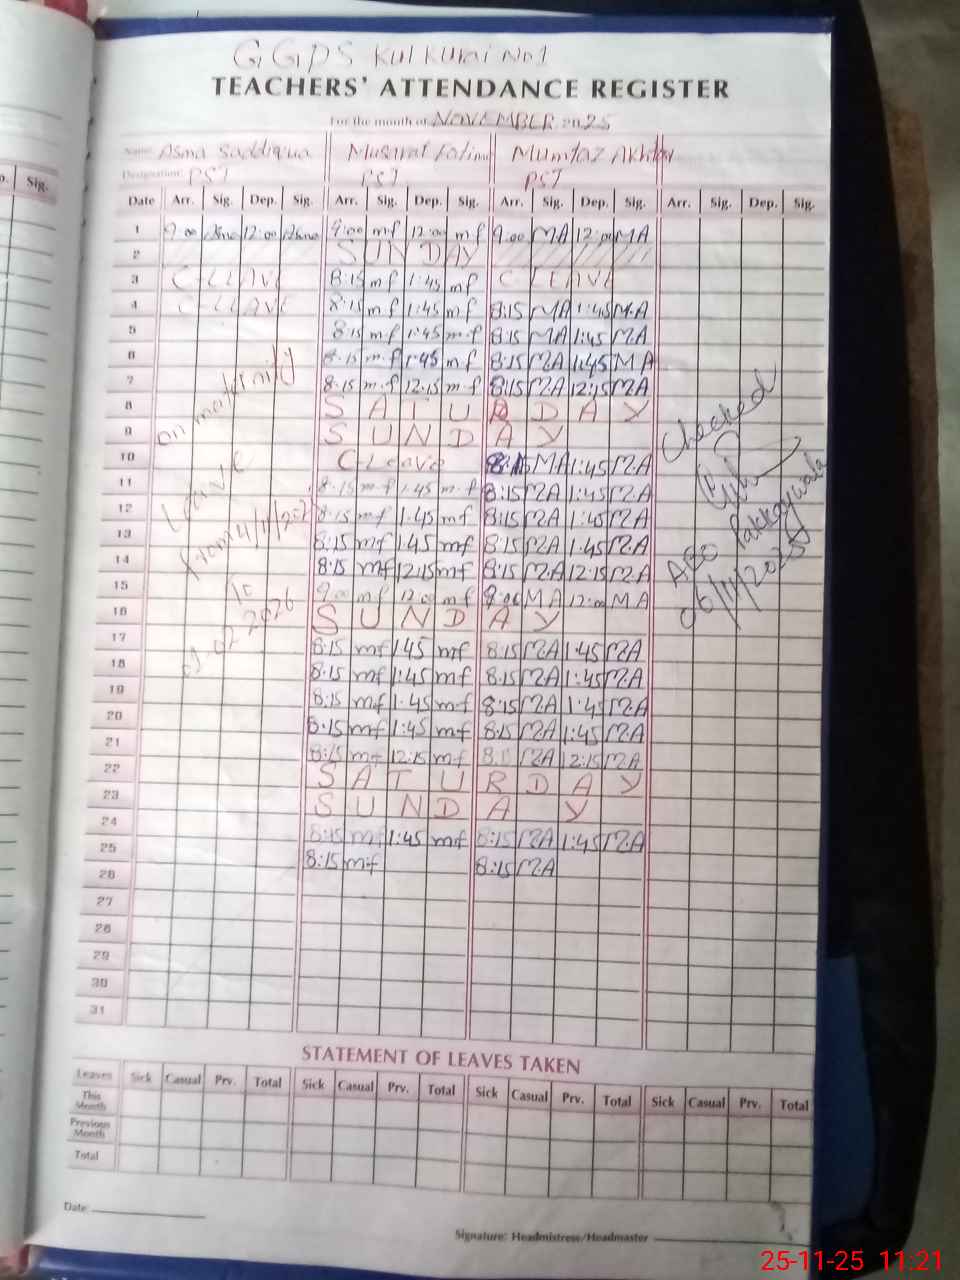 GGPS Kul Kurai No1
TEACHERS' ATTENDANCE REGISTER
For the month of NOVEMBER 2025
Name: Asma Saddiqua Musarat Fatima Mumtaz Akhtar
Designation: PST PST PST
Date Arr. Sig. Dep. Sig. Arr. Sig. Dep. Sig. Arr. Sig. Dep. Sig. Arr. Sig. Dep. Sig.
1 9:00 Asma 12:00 Asma 9:00 mf 12:00 mf 9:00 MA 12:00 MA
2 SUNDAY
3 C-LEAVE 8:15 mf 1:45 mf C LEAVE
4 C LEAVE 8:15 mf 1:45 mf 8:15 MA 1:45 M.A
5 8:15 mf 1:45 m-f 8:15 MA 1:45 MA
6 8:15 m-f 1:45 mf 8:15 MA 1:45 MA
7 8:15 m-f 12:15 m-f 8:15 MA 12:15 MA
8 SATURDAY
9 SUNDAY
10 C-Leave 8:15 MA 1:45 M.A
11 8:15 m-f 1:45 m-f 8:15 MA 1:45 M.A
12 8:15 mf 1:45 mf 8:15 MA 1:45 MA
13 8:15 mf 1:45 mf 8:15 MA 1:45 M.A
14 8:15 mf 12:15 mf 8:15 M.A 12:15 M.A
15 9:00 mf 12:00 mf 9:00 MA 12:00 MA
16 SUNDAY
17 8:15 mf 1:45 mf 8:15 MA 1:45 MA
18 8:15 mf 1:45 mf 8:15 MA 1:45 M.A
19 8:15 mf 1:45 mf 8:15 MA 1:45 M.A
20 8:15 mf 1:45 mf 8:15 MA 1:45 M.A
21 8:15 mf 12:15 mf 8:15 MA 12:15 MA
22 SATURDAY
23 SUNDAY
24 8:15 mf 1:45 mf 8:15 MA 1:45 M.A
25 8:15 mf 8:15 M.A
26
27
28
29
30
31
on maternity
Leave
from 4/11/2025
To
02 2026
Checked
AEO
06/11/2025
STATEMENT OF LEAVES TAKEN
Leaves Sick Casual Prv. Total Sick Casual Prv. Total Sick Casual Prv. Total Sick Casual Prv. Total
This Month
Previous Month
Total
Date:
Signature: Headmistress/Headmaster
Sig.
25-11-25 11:21